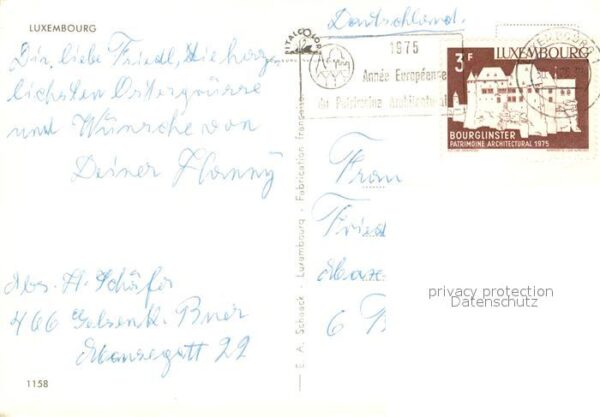 LUXEMBOURG
Dir, liebe Friedl, die herz-
lichsten Ostergrüsse
und Wünsche von
Deiner Hanny
Abs. H. Schäfer
466 Gelsenk. Buer
22
1158
E. A. Schaack - Luxembourg - Fabrication Française
VITALCOLOR
Deutschland.
1975
Année Européenne
du Patrimoine Architectural
3F LUXEMBOURG
BOURGLINSTER
PATRIMOINE ARCHITECTURAL 1975
Frau
Fried
6
privacy protection
Datenschutz